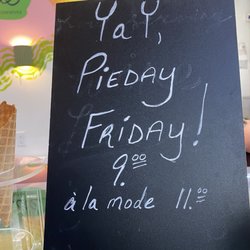 YaY,
PiEDAY
FRiDAY!
9.00
à la mode 11.00